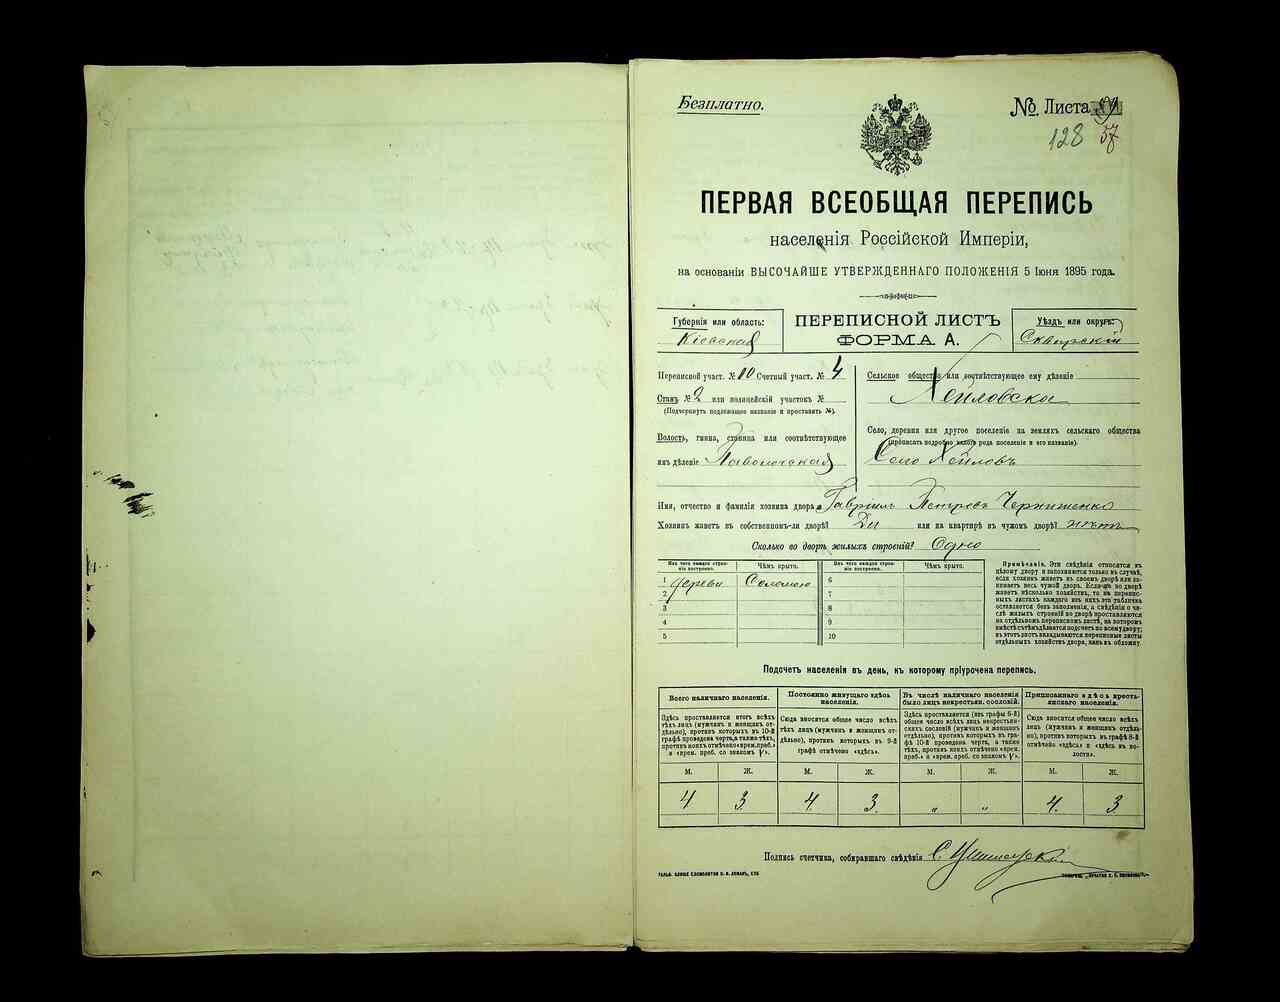 Безплатно.
№ Листа
128 57
ПЕРВАЯ ВСЕОБЩАЯ ПЕРЕПИСЬ
населенія Россійской Имперіи,
на основаніи ВЫСОЧАЙШЕ УТВЕРЖДЕННАГО ПОЛОЖЕНІЯ 5 Іюня 1895 года.
Губернія или область:
Кіевская
ПЕРЕПИСНОЙ ЛИСТЪ
ФОРМА А.
Уѣздъ или округъ:
Сквирскій
Переписной участ. № 10 Счетный участ. № 4
Станъ № 2 или полицейскій участокъ №
(Подчеркнуть подлежащее названіе и проставить №).
Волость, гмина, станица или соотвѣтствующее
имъ дѣленіе Паволочская
Сельское общество или соотвѣтствующее ему дѣленіе
Хейловска
Село, деревня или другое поселеніе на земляхъ сельскаго общества
(прописать подробно какого рода поселеніе и его названіе).
Село Хейловъ
Имя, отчество и фамилія хозяина двора Гавріилъ Петровъ Чернишенко
Хозяинъ живетъ въ собственномъ-ли дворѣ? Да или на квартирѣ въ чужомъ дворѣ? нѣтъ
Сколько во дворѣ жилыхъ строеній? Одно
Изъ чего каждое строеніе построено.
Чѣмъ крыто.
Изъ чего каждое строеніе построено.
Чѣмъ крыто.
1 дерева Соломою 6
2 7
3 8
4 9
5 10
Примѣчаніе. Эти свѣдѣнія относятся къ
цѣлому двору и заполняются только въ случаѣ,
если хозяинъ живетъ въ своемъ дворѣ или занимаетъ весь чужой дворъ. Если-же во дворѣ
живетъ нѣсколько хозяйствъ, то на переписныхъ листахъ каждаго изъ нихъ эта табличка
оставляется безъ заполненія, а свѣдѣнія о числѣ жилыхъ строеній во дворѣ проставляются
на отдѣльномъ переписномъ листѣ, на которомъ
вмѣстѣ съ тѣмъ дѣлается подсчетъ по всему двору;
въ этотъ листъ вкладываются переписные листы
отдѣльныхъ хозяйствъ двора, какъ въ обложку.
Подсчетъ населенія въ день, къ которому пріурочена перепись.
Всего наличнаго населенія.
Здѣсь проставляется итогъ всѣхъ
тѣхъ лицъ (мужчинъ и женщинъ отдѣльно), противъ которыхъ въ 10-й
графѣ проведена черта, а также тѣхъ,
противъ коихъ отмѣчено «врем. преб.»
и «врем. преб. со знакомъ V».
Постоянно живущаго здѣсь
населенія.
Сюда вносится общее число всѣхъ
тѣхъ лицъ (мужчинъ и женщинъ отдѣльно), противъ которыхъ въ 9-й
графѣ отмѣчено «здѣсь».
Въ числѣ наличнаго населенія
было лицъ некрестьян. сословій.
Здѣсь проставляется (изъ графы 6-й)
общее число всѣхъ лицъ некрестьянскихъ сословій (мужчинъ и женщинъ
отдѣльно), противъ которыхъ въ графѣ 10-й проведена черта, а также
тѣхъ, противъ коихъ отмѣчено «врем.
преб.» и «врем. преб. со знакомъ V».
Приписаннаго здѣсь крестьянскаго населенія.
Сюда вносится общее число всѣхъ
лицъ (мужчинъ и женщинъ отдѣльно), противъ которыхъ въ графѣ 8-й
отмѣчено «здѣсь» и «здѣсь въ волости».
М. Ж. М. Ж. М. Ж. М. Ж.
4 3. 4. 3. „ „ 4. 3.
Подпись счетчика, собиравшаго свѣдѣнія